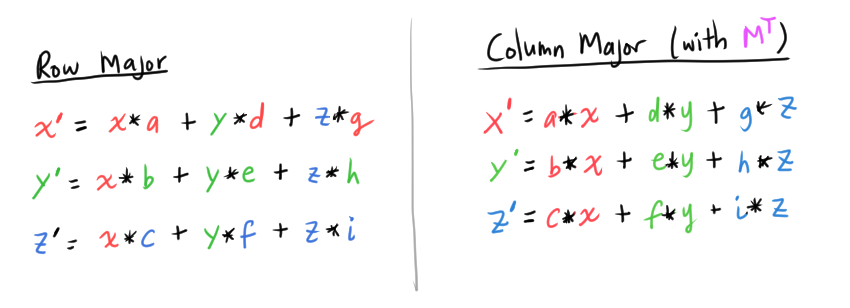 Row Major
x' = x*a + y*d + z*g
y' = x*b + y*e + z*h
z' = x*c + y*f + z*i
Column Major (with Mᵀ)
x' = a*x + d*y + g*z
y' = b*x + e*y + h*z
z' = c*x + f*y + i*z